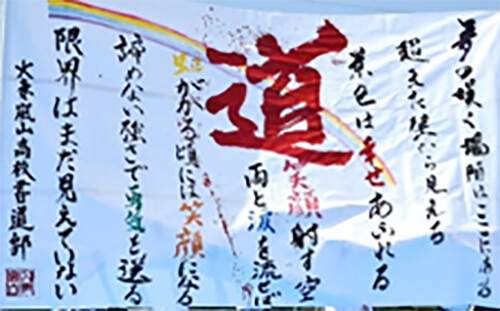 夢の咲く場所はここにある
超えた壁から見える
景色は幸せあふれる
道
笑顔射す空
雨と涙を流せば
虹がかかる頃には笑顔になる
諦めない強さでを送る
限界はまだ見えていない
嵐山高校書道部